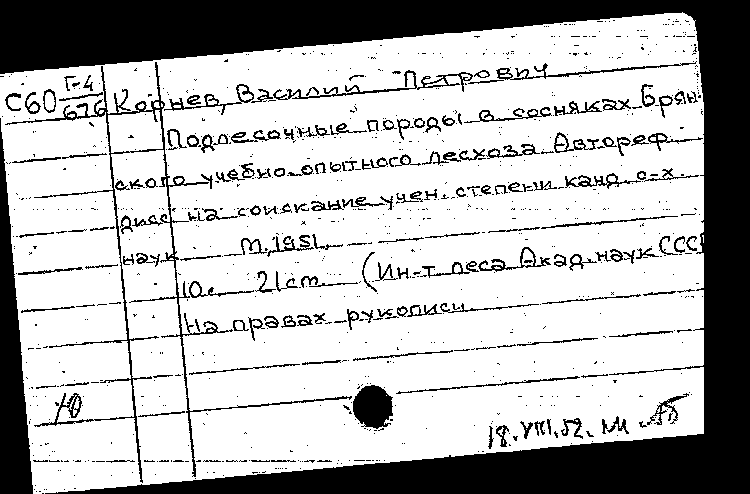 С60 Г-4/676 Корнев, Василий Петрович
Подлесочные породы в сосняках Брян-
ского учебно-опытного лесхоза Автореф.
дисс на соискание учен. степени канд. с-х.
наук М, 1951.
10с. 21 cm. (Ин-т леса Акад. наук СССР
На правах рукописи.
18.VIII.52.